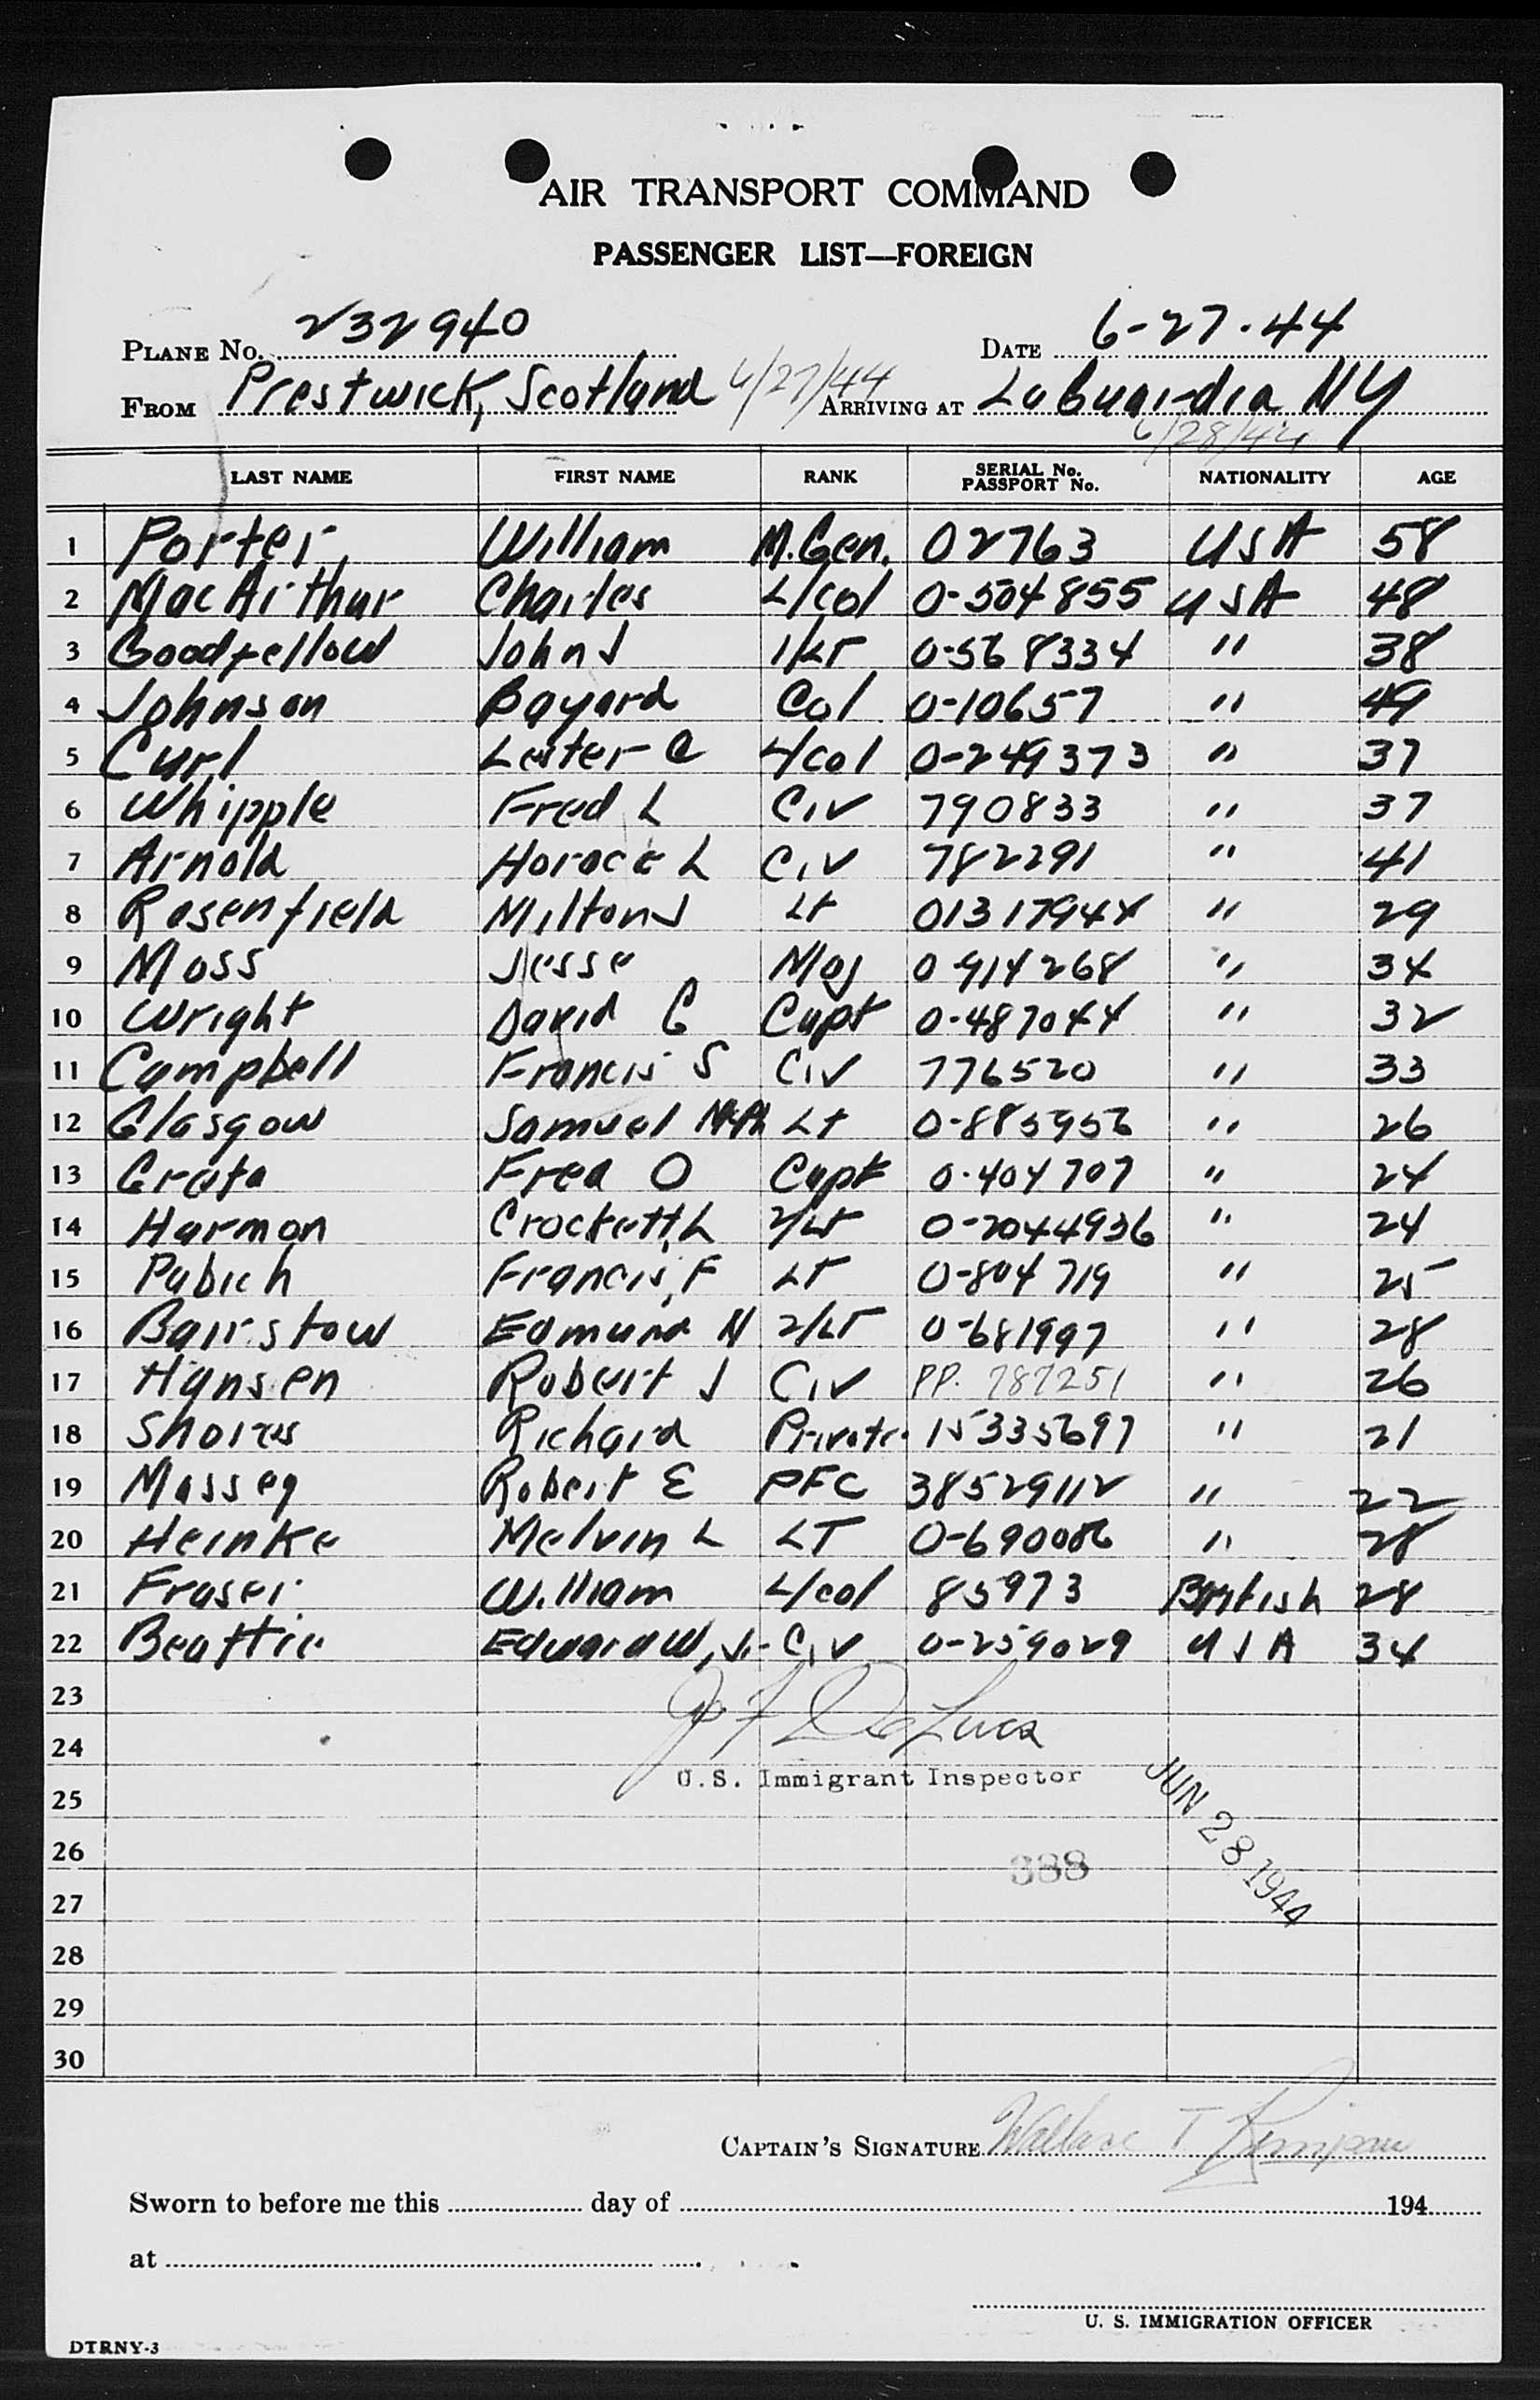 AIR TRANSPORT COMMAND
PASSENGER LIST—FOREIGN
PLANE No. 232940 DATE 6-27-44
FROM Prestwick, Scotland 6/27/44 ARRIVING AT LaGuardia NY
6/28/44
LAST NAME FIRST NAME RANK SERIAL No. PASSPORT No. NATIONALITY AGE
1 Porter William M.Gen. 02763 USA 58
2 MacArthur Charles L/Col 0-504855 USA 48
3 Goodfellow John J 1/LT 0-568334 " 38
4 Johnson Bayard Col 0-10657 " 49
5 Curl Lester C L/Col 0-249373 " 37
6 Whipple Fred L Civ 790833 " 37
7 Arnold Horace L Civ 782291 " 41
8 Rosenfield Milton J Lt 01317944 " 29
9 Moss Jesse Maj 0-914268 " 34
10 Wright David G Capt 0-487044 " 32
11 Campbell Francis S Civ 776520 " 33
12 Glasgow Samuel Lt 0-885956 " 26
13 Fred O Capt 0-404707 " 24
14 Harmon Crockett L 2/LT 0-2044936 " 24
15 Pabich Francis F LT 0-804719 " 25
16 Barrstow Edmund N 2/LT 0-681997 " 28
17 Hansen Robert J Civ PP. 787251 " 26
18 Shores Richard Private 15335697 " 21
19 Massey Robert E PFC 38529112 " 22
20 Heinke Melvin L LT 0-690086 " 28
21 Fraser William L/Col 85973 British 28
22 Beattie Edward W, Jr. Civ 0-259029 USA 34
23
J F DeLuca
24
U.S. Immigrant Inspector
JUN 28 1944
25
26
388
27
28
29
30
CAPTAIN'S SIGNATURE Wallace T
Sworn to before me this day of 194
at
U. S. IMMIGRATION OFFICER
DTRNY-3